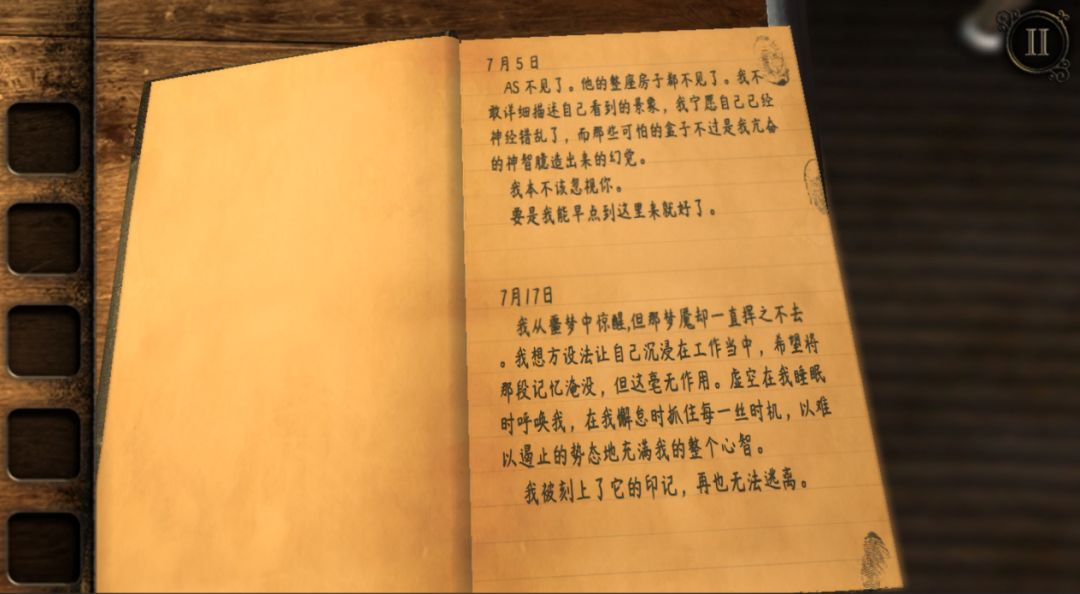 II
7月5日
AS不见了。他的整座房子都不见了。我不
敢详细描述自己看到的景象，我宁愿自己已经
神经错乱了，而那些可怕的盒子不过是我亢奋
的神智臆造出来的幻觉。
我本不该忽视你。
要是我能早点到这里来就好了。
7月17日
我从噩梦中惊醒,但那梦魇却一直挥之不去
。我想方设法让自己沉浸在工作当中，希望将
那段记忆淹没，但这毫无作用。虚空在我睡眠
时呼唤我，在我懈怠时抓住每一丝时机，以难
以遏止的势态地充满我的整个心智。
我被刻上了它的印记，再也无法逃离。